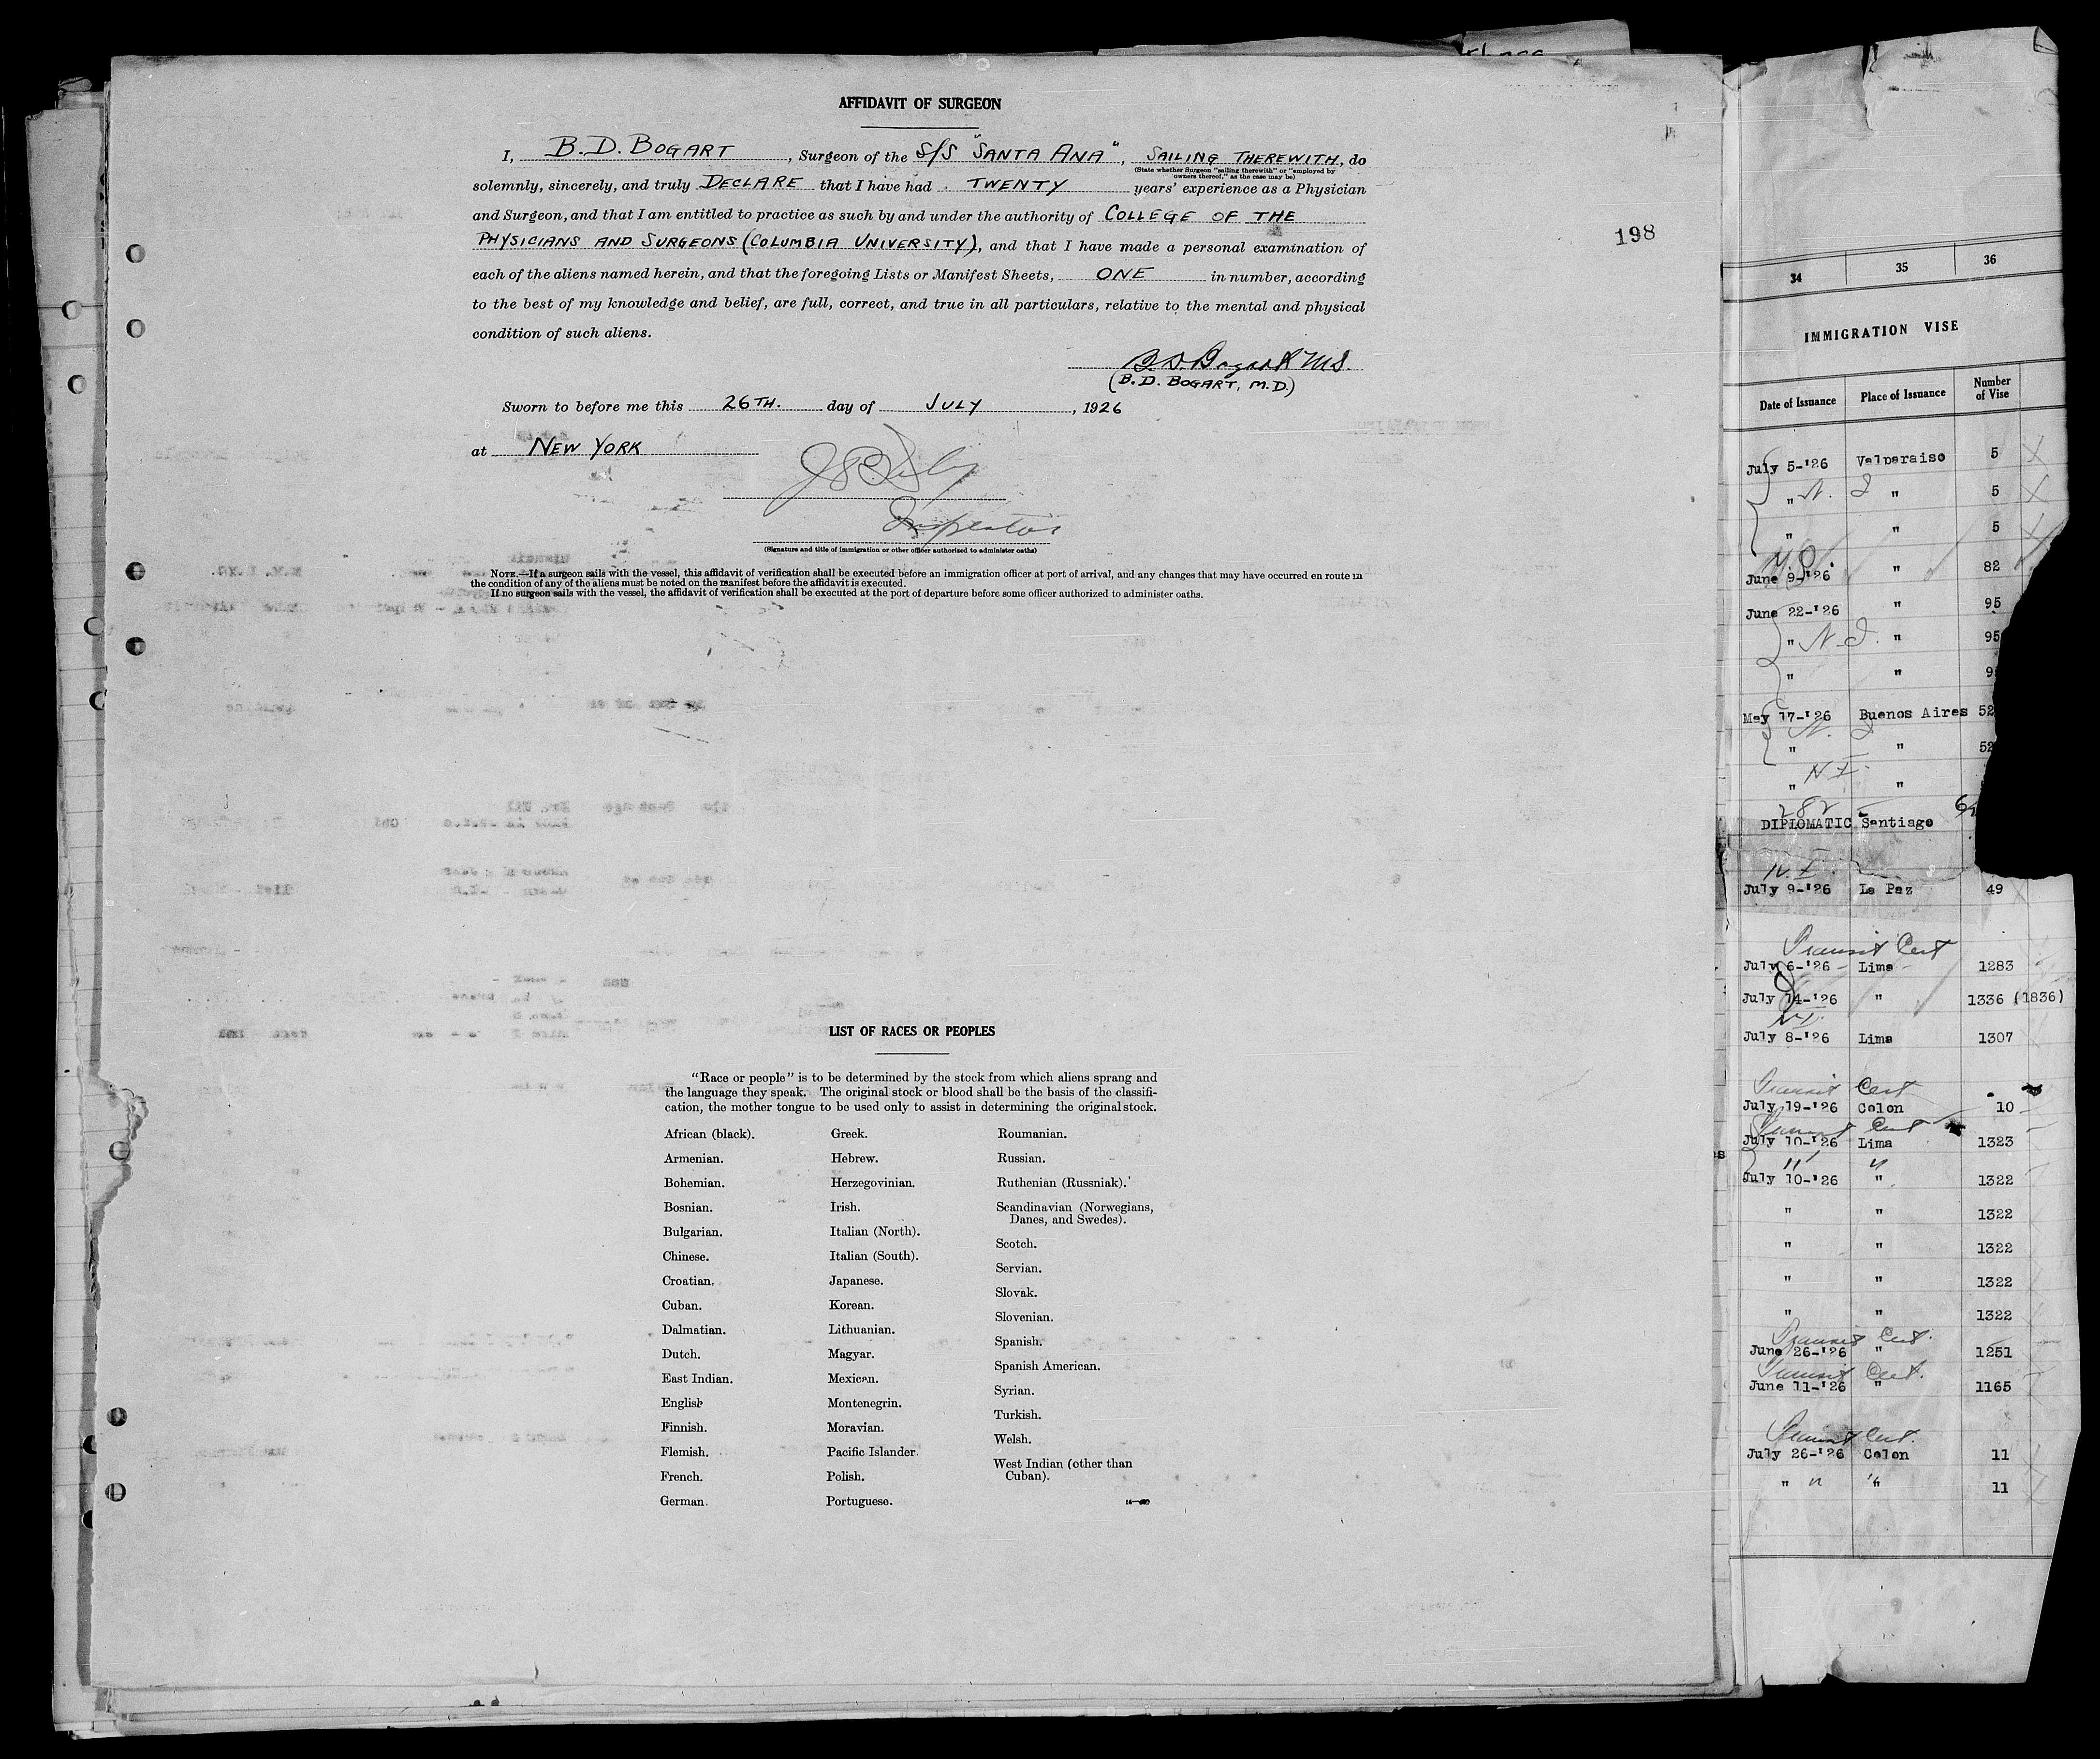 AFFIDAVIT OF SURGEON
I, B. D. BOGART, Surgeon of the S/S "SANTA ANA", SAILING THEREWITH, do
(State whether Surgeon "sailing therewith" or "employed by
owners thereof," as the case may be)
solemnly, sincerely, and truly DECLARE that I have had TWENTY years' experience as a Physician
and Surgeon, and that I am entitled to practice as such by and under the authority of COLLEGE OF THE
PHYSICIANS AND SURGEONS (COLUMBIA UNIVERSITY), and that I have made a personal examination of
each of the aliens named herein, and that the foregoing Lists or Manifest Sheets, ONE in number, according
to the best of my knowledge and belief, are full, correct, and true in all particulars, relative to the mental and physical
condition of such aliens.
B. D. Bogart M.D.
(B. D. BOGART, M.D.)
Sworn to before me this 26TH. day of JULY, 1926
at NEW YORK
Inspector
(Signature and title of immigration or other officer authorized to administer oaths)
NOTE.—If a surgeon sails with the vessel, this affidavit of verification shall be executed before an immigration officer at port of arrival, and any changes that may have occurred en route in
the condition of any of the aliens must be noted on the manifest before the affidavit is executed.
If no surgeon sails with the vessel, the affidavit of verification shall be executed at the port of departure before some officer authorized to administer oaths.
198
LIST OF RACES OR PEOPLES
"Race or people" is to be determined by the stock from which aliens sprang and
the language they speak. The original stock or blood shall be the basis of the classifi-
cation, the mother tongue to be used only to assist in determining the original stock.
African (black).
Armenian.
Bohemian.
Bosnian.
Bulgarian.
Chinese.
Croatian.
Cuban.
Dalmatian.
Dutch.
East Indian.
English
Finnish.
Flemish.
French.
German.
Greek.
Hebrew.
Herzegovinian.
Irish.
Italian (North).
Italian (South).
Japanese.
Korean.
Lithuanian.
Magyar.
Mexican.
Montenegrin.
Moravian.
Pacific Islander.
Polish.
Portuguese.
Roumanian.
Russian.
Ruthenian (Russniak).
Scandinavian (Norwegians,
Danes, and Swedes).
Scotch.
Servian.
Slovak.
Slovenian.
Spanish.
Spanish American.
Syrian.
Turkish.
Welsh.
West Indian (other than
Cuban).
34 35 36
IMMIGRATION VISE
Date of Issuance Place of Issuance Number of Vise
July 5-'26 Valparaiso 5
" N. I " 5
" " 5
June 9-'26 " 82
June 22-'26 " 95
" N. I. " 95
" " 9
May 17-'26 Buenos Aires 52
" N. I " 52
N I
" "
DIPLOMATIC Santiago
N. I.
July 9-'26 La Paz 49
Transit Cert
July 6-'26 Lima 1283
July 14-'26 " 1336 (1836)
N I.
July 8-'26 Lima 1307
Transit Cert
July 19-'26 Colon 10
Transit Cert
July 10-'26 Lima 1323
" "
July 10-'26 " 1322
" " 1322
" " 1322
" " 1322
" " 1322
Transit Cert.
June 26-'26 " 1251
Transit Cert.
June 11-'26 " 1165
Transit Cert.
July 26-'26 Colon 11
" " " 11